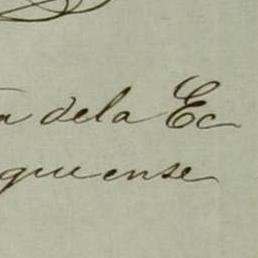 a dela Ec
guense